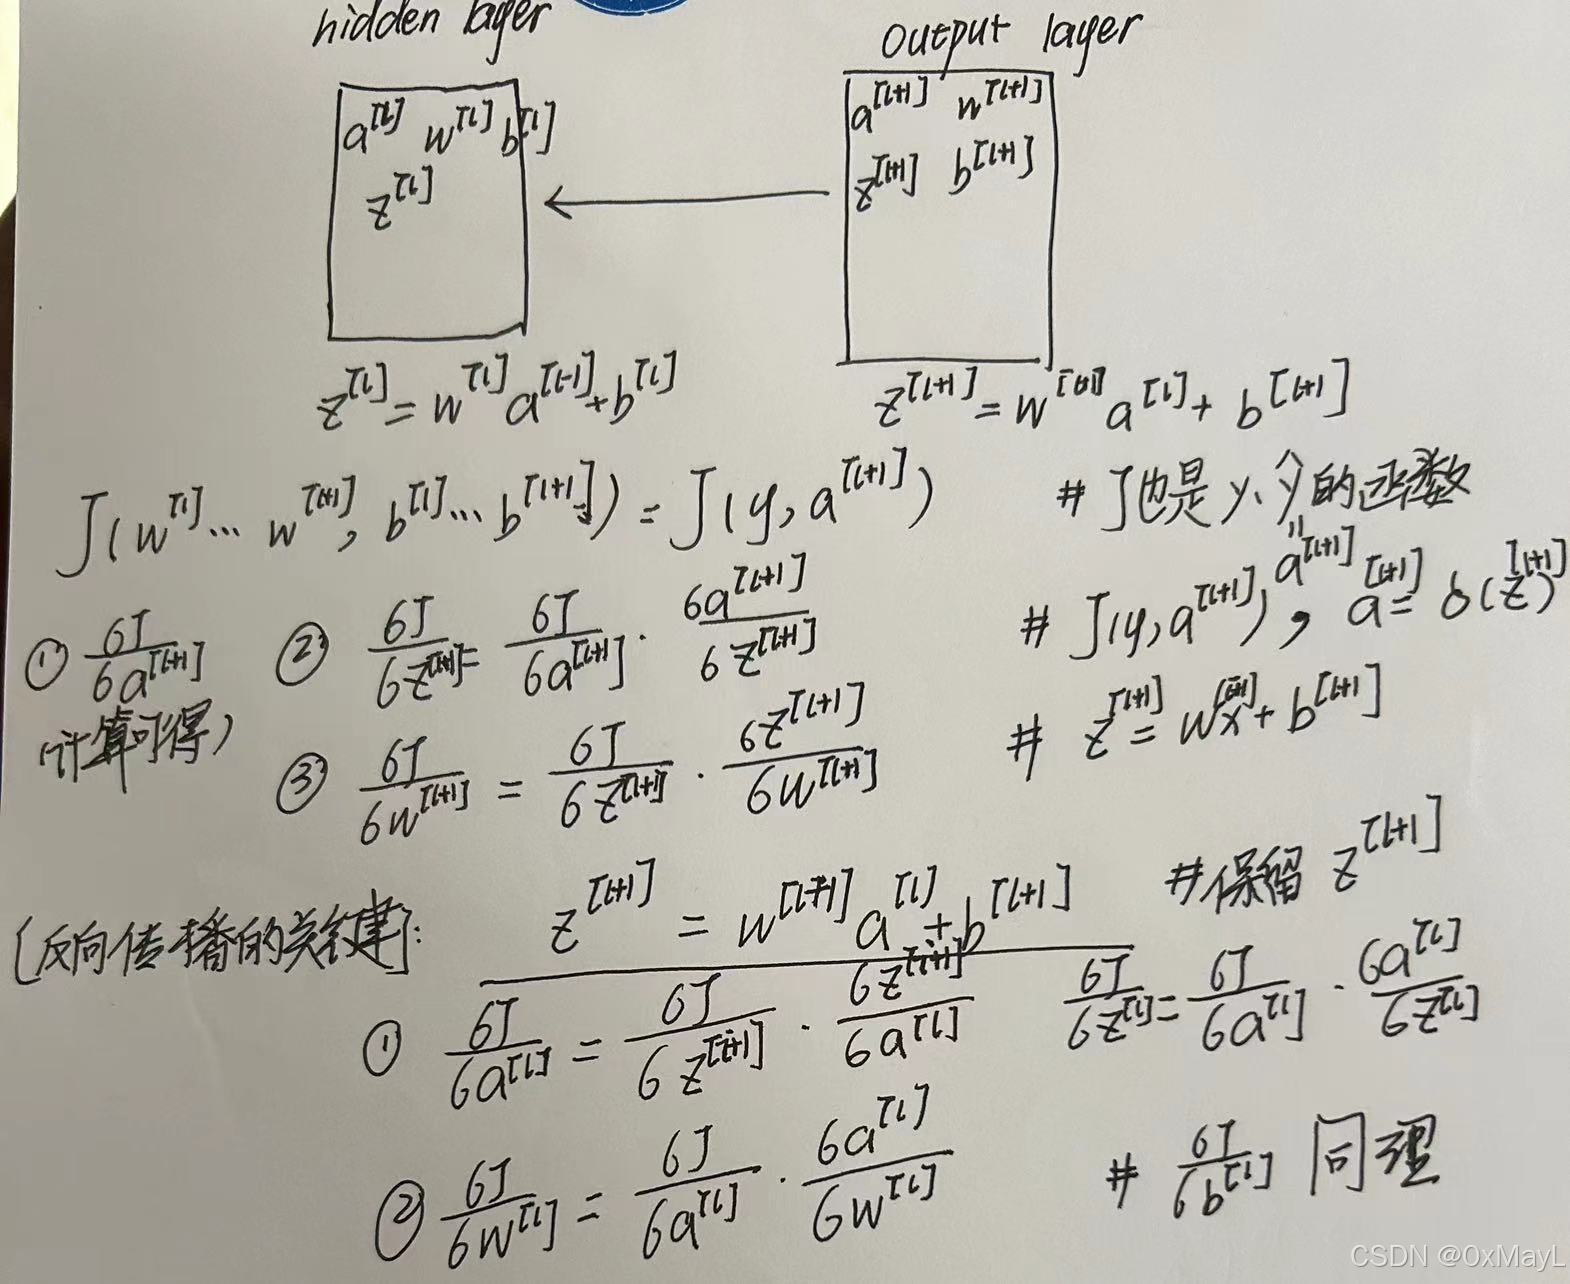 hidden layer
output layer
a^[l] w^[l] b^[l]
z^[l]
a^[l+1] w^[l+1]
z^[l+1] b^[l+1]
z^[l] = w^[l] a^[l-1] + b^[l]
z^[l+1] = w^[l+1] a^[l] + b^[l+1]
J(w^[l]... w^[l+1], b^[l]... b^[l+1]) = J(y, a^[l+1]) # J也是y、ŷ的函数
" a^[l+1]
① 6J/6a^[l+1] ② 6J/6z^[l+1] = 6J/6a^[l+1] · 6a^[l+1]/6z^[l+1] # J(y, a^[l+1]), a^[l+1] = 6(z^[l+1])
(计算可得)
③ 6J/6w^[l+1] = 6J/6z^[l+1] · 6z^[l+1]/6w^[l+1] # z^[l+1] = w^[l+1]x + b^[l+1]
[反向传播的关键]: z^[l+1] = w^[l+1] a^[l] + b^[l+1] #保留 z^[l+1]
① 6J/6a^[l] = 6J/6z^[i+1] · 6z^[i+1]/6a^[l] 6J/6z^[l] = 6J/6a^[l] · 6a^[l]/6z^[l]
② 6J/6w^[l] = 6J/6a^[l] · 6a^[l]/6w^[l] # 6J/6b^[l] 同理
CSDN @0xMayL